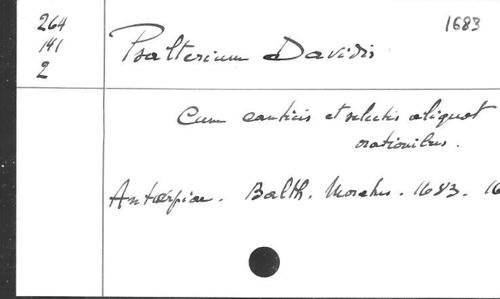 264
141
2
1683
Psalterium Davidis
Cum canticis et selectis aliquot
orationibus.
Antverpiae. Balth. Moretus. 1683. 16